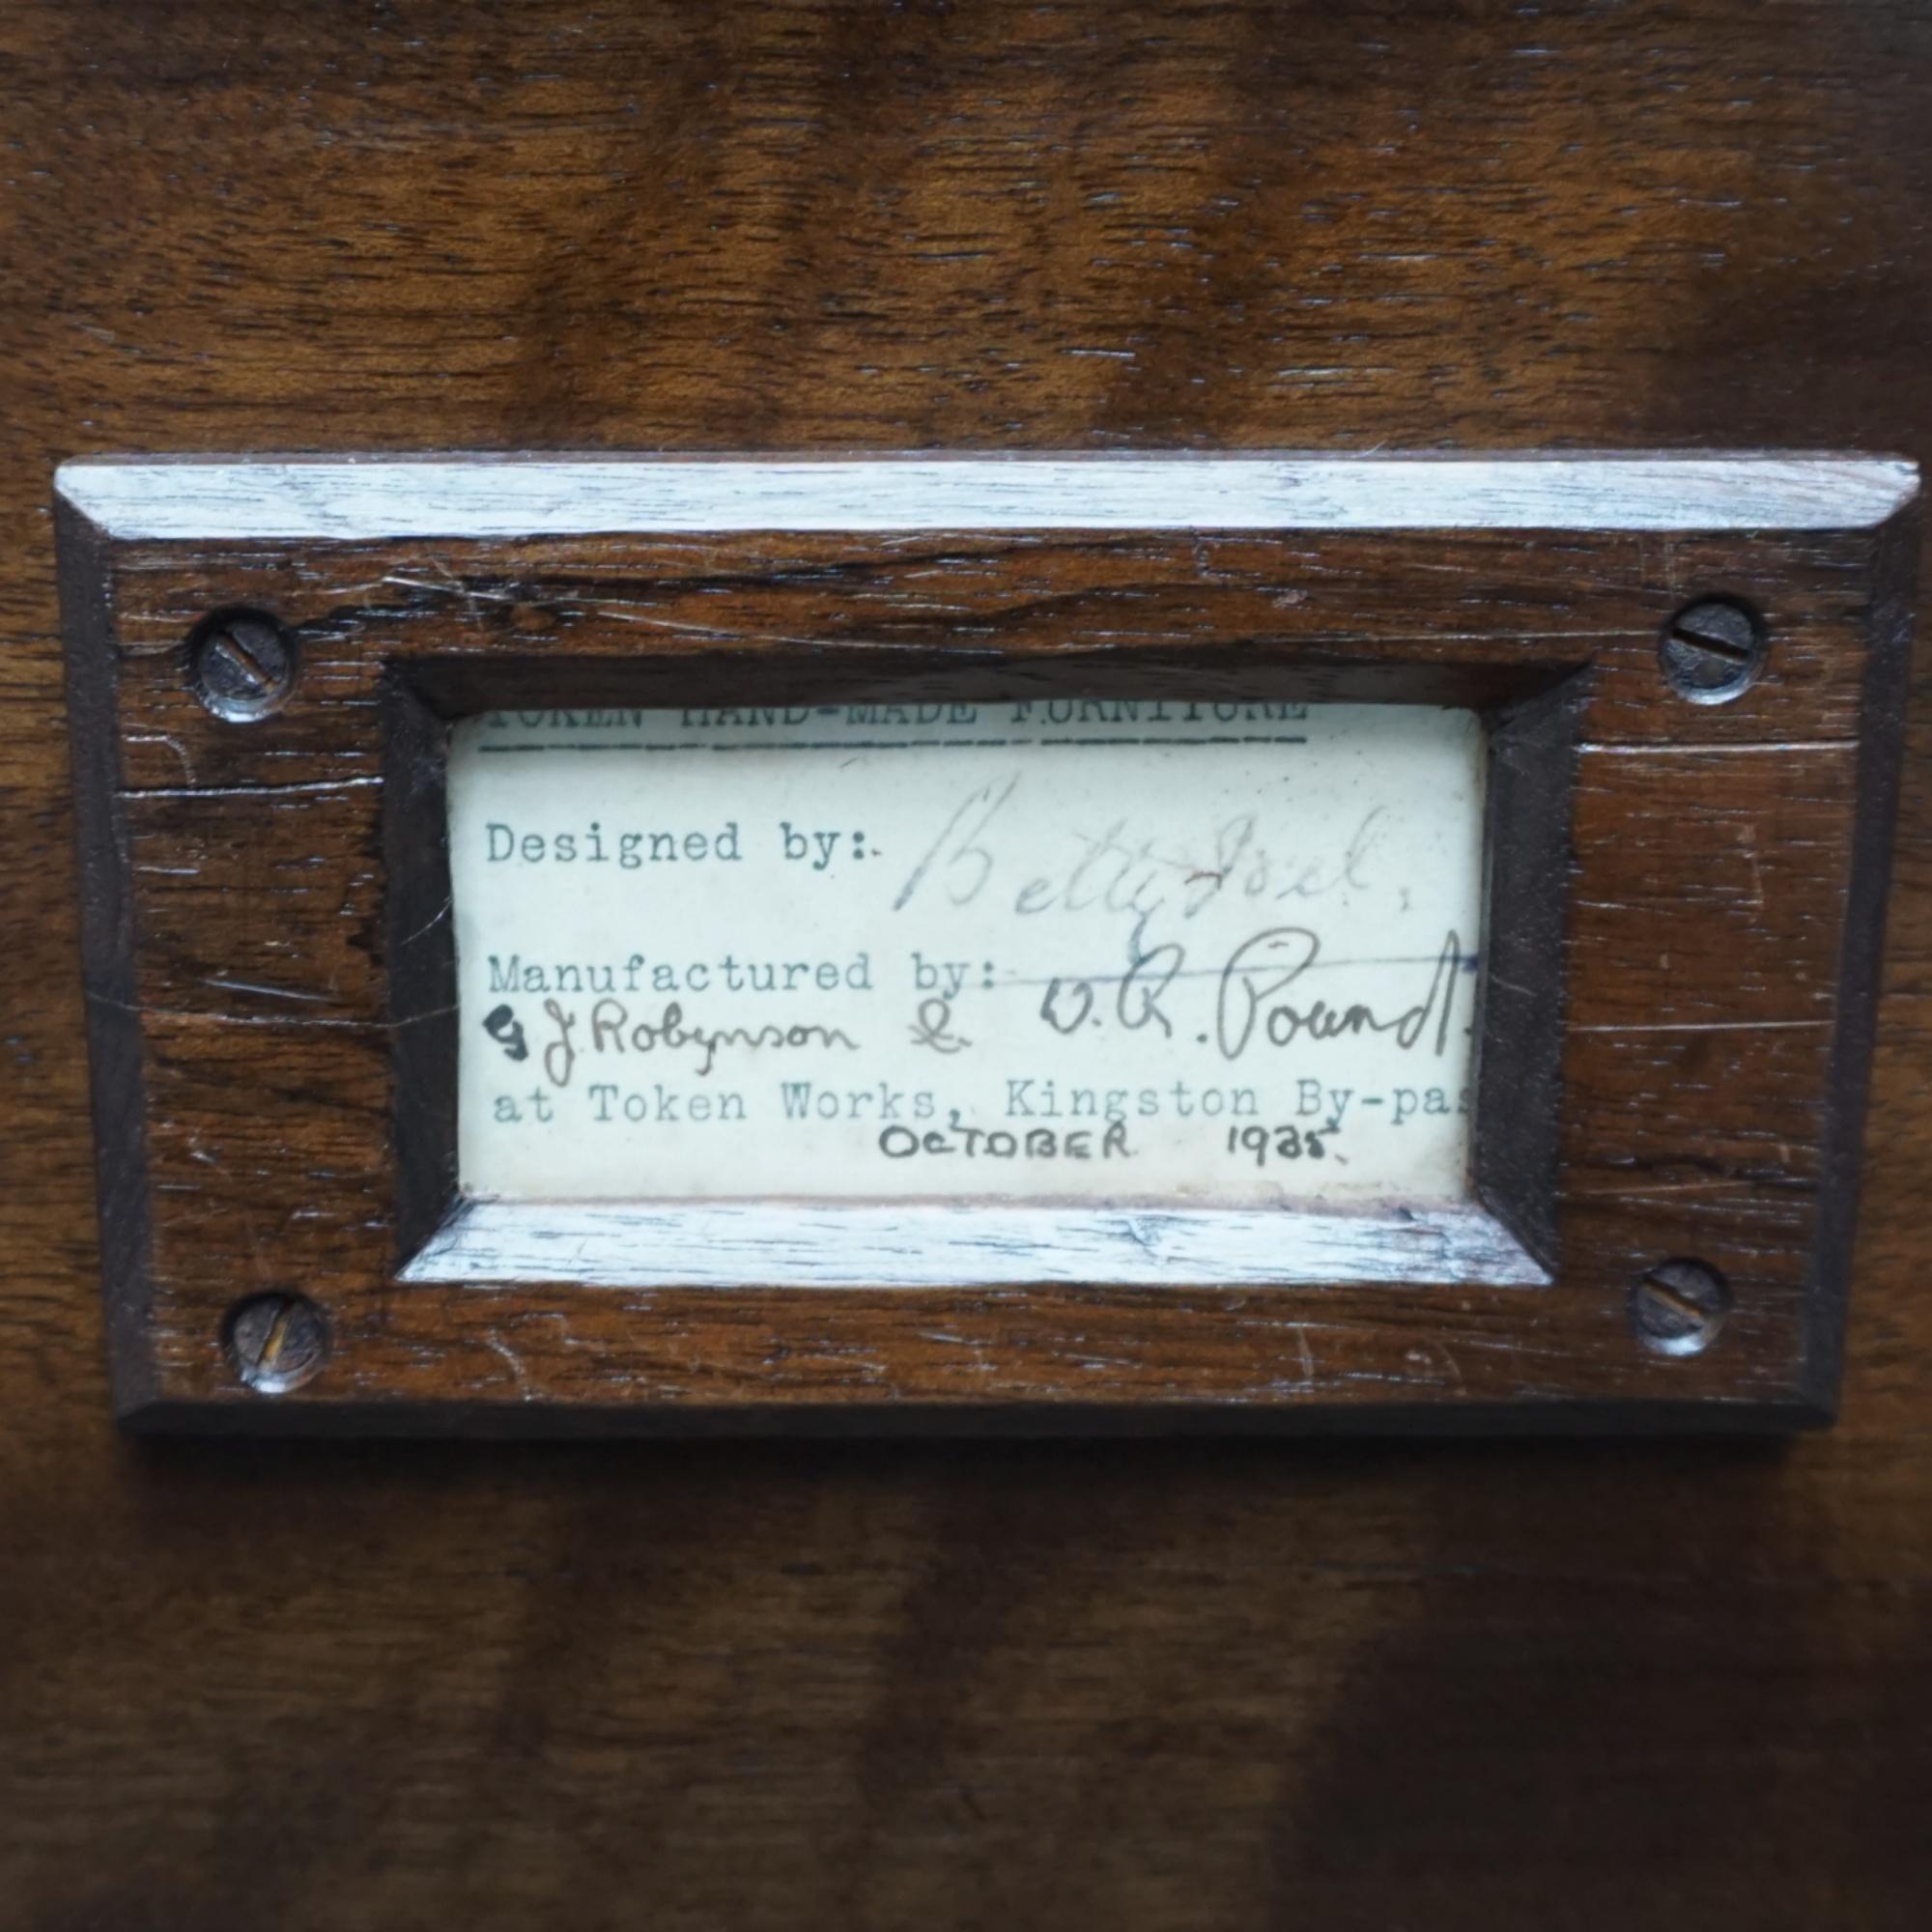 TOKEN HAND-MADE FURNITURE
Designed by: Betty Joel.
Manufactured by:
G J. Robynson & W. R. Pound.
at Token Works, Kingston By-pas
OCTOBER 1935.